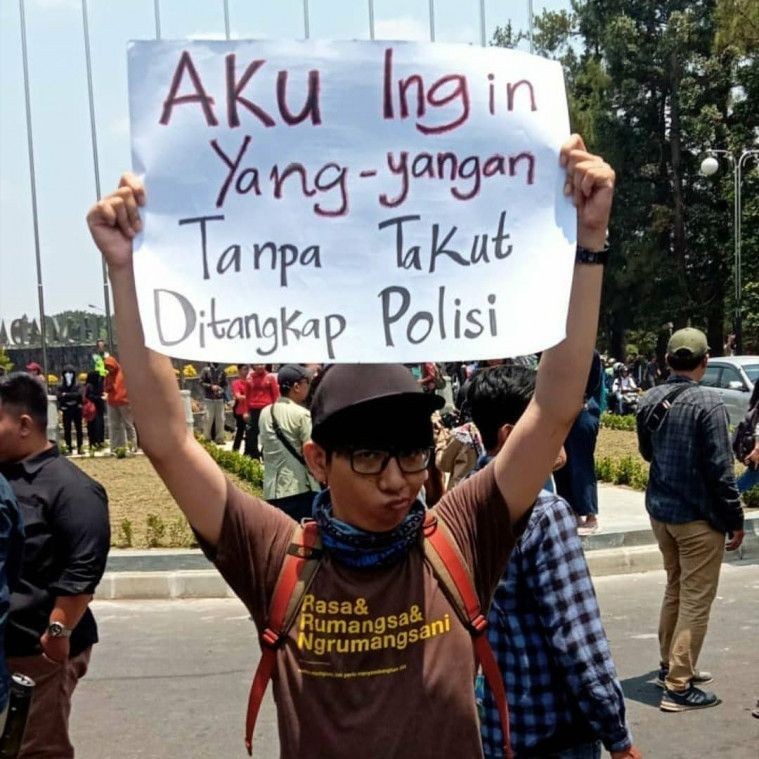 AKU Ingin
Yang-yangan
Tanpa Takut
Ditangkap Polisi
Rasa&
Rumangsa&
Ngrumangsani